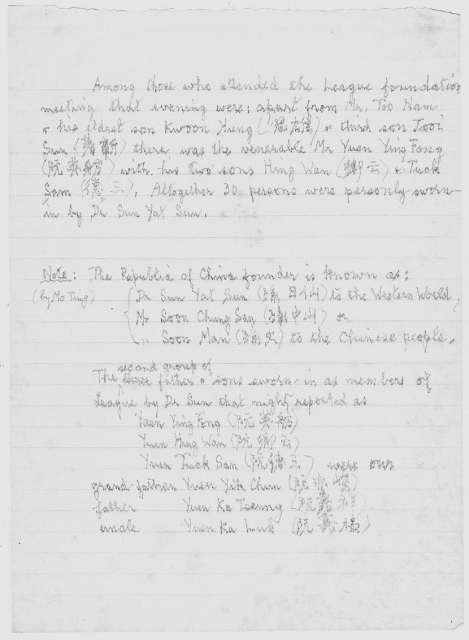 Among those who attended the League foundation
meeting that evening were: apart from Mr. Too Nam
& his eldest son Kwoon Hung ( ) & third son Tooi
Sun ( ) there was the venerable Mr Yuen Ying Fong
( ) with his two sons Hing Wan ( ) & Tuck
Sam (德三). Altogether 30 persons were personly sworn-
in by Dr Sun Yat Sun.
Note: The Republic of China founder is known as:
(by Mo Ting) Dr Sun Yat Sun (孫日仙) to the Western World,
Mr Soon Chung Say (孫中山) or
" Soon Man (孫文) to the Chinese people.
second group of
The father & sons sworn-in as members of
League by Dr Sun that night reported as
Yuen Ying Fong (阮英舫)
Yuen Hing Wan (阮 云)
Yuen Tuck San (阮德三) were own
grand-father Yuen Yick Chun (阮 )
father Yuen Ka Tseung (阮 祥)
uncle Yuen Ka Luk (阮 )